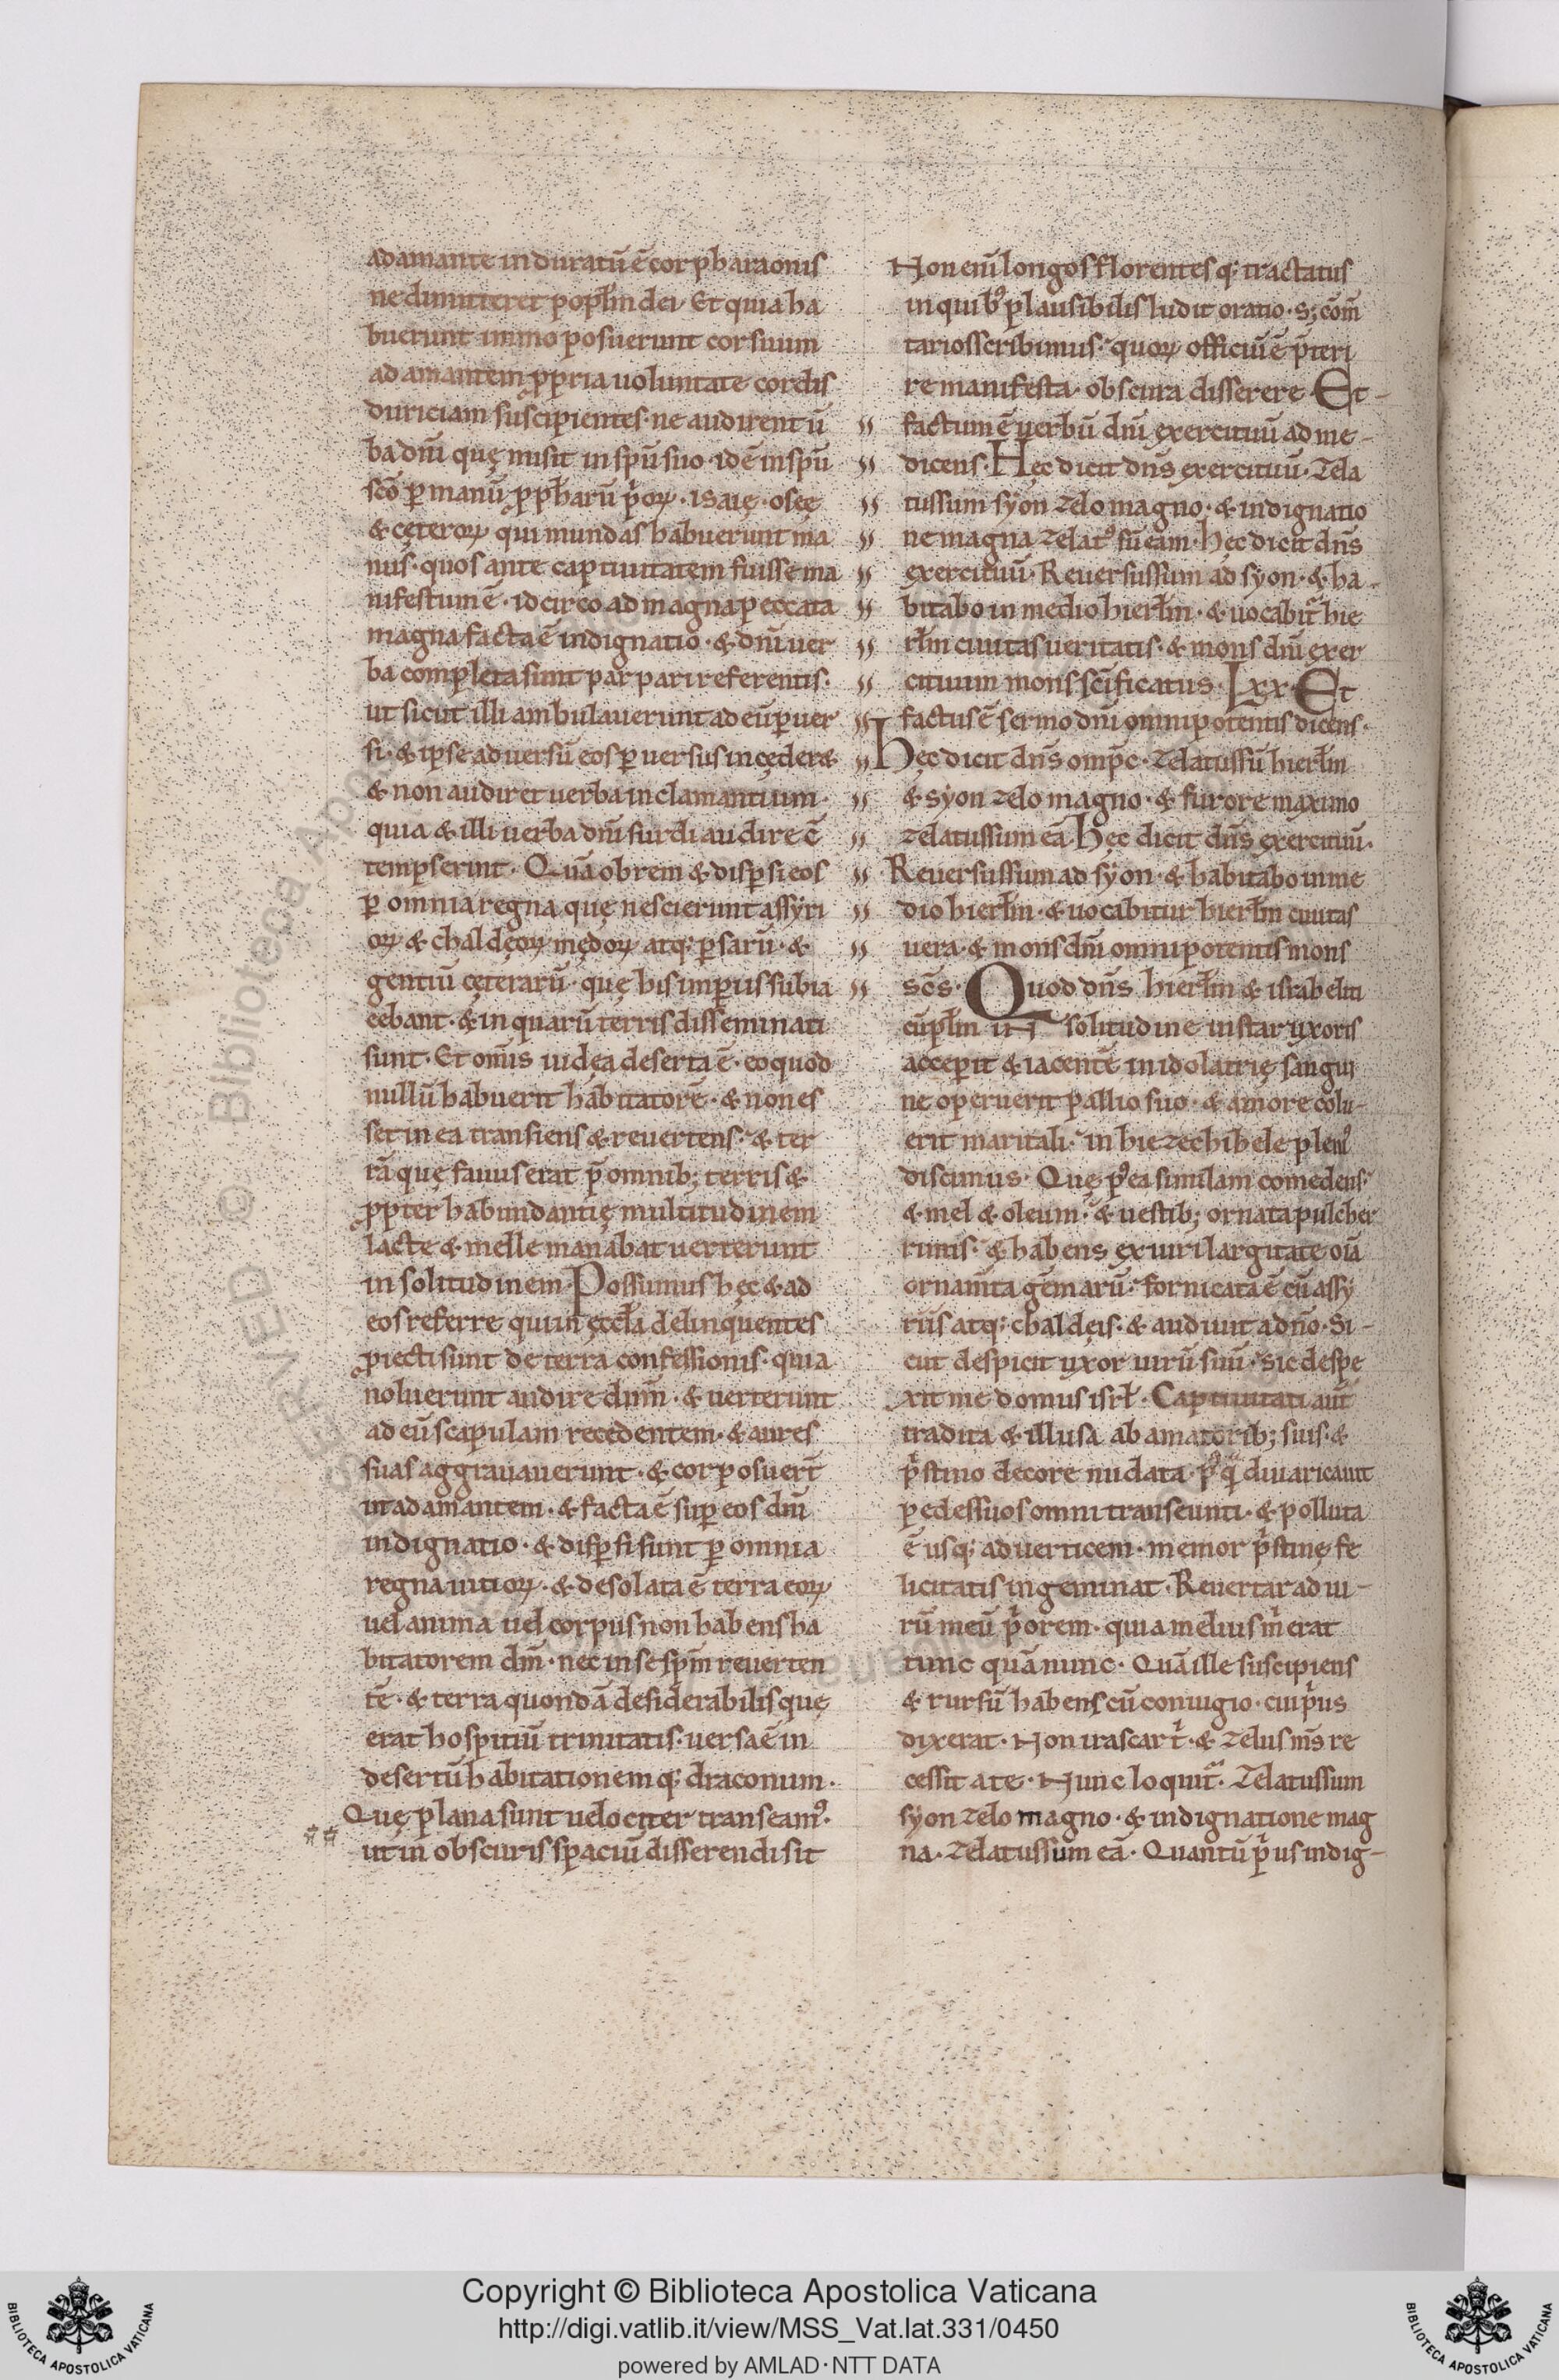 adamante induratũ ẽ cor pharaonis
ne dimitteret popłm dei. Et quia ha
buerunt immo posuerunt cor suum
adamantem ꝓpria uoluntate cordis
duriciam suscipientes. ne audirent ũ
ba dñi quę misit in sp̃u suo. id ẽ in sp̃u
sc̃o ꝑ manũ ꝓph̃arũ p̃oꝝ. isaię. osee
& cęteroꝝ qui mundas habuerunt ma
nus. quos ante captiuitatem fuisse ma
nifestum ẽ. idcirco ad magna peccata
magna facta ẽ indignatio. & dñi uer
ba completa sunt par pari referentis.
ut sicut illi ambulauerunt ad eũ ꝑuer
si. & ipse aduersũ eos ꝑuersus incęder&
& non audiret uerba inclamantium.
quia & illi uerba dñi surdi audire cõ
tempserint. Quã obrem & dispersi eos
ꝑ omnia regna quę nescierunt assyri
oꝝ & chaldęoꝝ mędoꝝ atq; ꝑsarũ. &
gentiũ cęterarũ. quę his imperiis subia
cebant. & in quarũ terris disseminati
sunt. Et om̃is iudęa deserta ẽ. eo quod
nullũ habuerit habitatorẽ. & non es
set in ea transiens & reuertens. & ter
rã quę fuius erat p̃ omnib; terris &
ꝓpter habundantię multitudinem
lacte & melle manabat uerterunt
in solitudinem. Possumus hęc & ad
eos referre qui in ęccła delinquentes
ꝓiecti sunt de terra confessionis. quia
noluerunt audire dnm̃. & uerterunt
ad eũ scapulam recedentem. & aures
suas aggrauauerunt. & cor posuer̃t
in adamantem. & facta ẽ suꝑ eos dñi
indignatio. & disꝑsi sunt ꝑ omnia
regna uitioꝝ. & desolata ẽ terra eoꝝ
uel anima uel corpus non habens ha
bitatorem dm̃. nec in se sp̃m reuerten
tẽ. & terra quondã desiderabilis quę
erat hospitiũ trinitatis. uersa ẽ in
desertũ habitationemq; draconum.
Quę plana sunt uelociter transeam⁹.
ut in obscuris spaciũ disserendi sit
Non enĩ longos florentesq; tractatus
in quib⁹ plausibilis ludit oratio. s; cõm̃
tarios scribimus. quoꝝ officiũ ẽ p̃teri
re manifesta. obscura disserere. Et
factum ẽ uerbũ dñi exercituũ ad me
dicens. Hęc dicit dñs exercituũ. Zela
tus sum syon zelo magno. & indignatio
ne magna zelat⁹ sũ eam. Hęc dicit dñs
exercituũ. Reuersus sum ad syon. & ha
bitabo in medio hierłm. & uocabit̃ hie
rłm ciuitas ueritatis. & mons dñi exer
cituum mons sc̃ificatus. Lxx. Et
factus ẽ sermo dñi omnipotentis dicens.
Hęc dicit dñs omp̃c. Zelatus sũ hierłm
& syon zelo magno. & furore maximo
zelatus sum eã. Hęc dicit dñs exercituũ.
Reuersus sum ad syon. & habitabo in me
dio hierłm. & uocabitur hierłm ciuitas
uera. & mons dñi omnipotentis mons
sc̃s. Quod dñs hierłm & israheliti
cũ płm in solitudine instar uxoris
acceperit & iacentẽ in idolatrię sangui
ne operuerit pallio suo. & amore colu
erit maritali. in hiezechihele plen⁹
discimus. Quę p⁹ea similam comedens.
& mel & oleum. & uestib; ornata pulcher
rimis. & habens ex uiri largitate oĩa
ornam̃ta gẽmarũ. fornicata ẽ cũ assy
riis atq; chaldęis. & audiuit a dño. Si
cut despicit uxor uirũ suũ. sic despe
xit me domus isrł. Captiuitati aũt
tradita & illusa ab amatorib; suis. &
p̃stino decore nudata. p⁹q̃ diuaricauit
pedes suos omni transeunti. & polluta
ẽ usq; ad uerticem. memor p̃stinę fe
licitatis ingeminat. Reuertar ad ui
rũ meũ p̃orem. quia melius m̃ erat
tunc quã nunc. Quã ille suscipiens
& rursũ habens cũ coniugio. cui p̃us
dixerat. Non irascar t̃. & zelus m̃s re
cessit a te. Nunc loquit̃. Zelatus sum
syon zelo magno. & indignatione mag
na. Zelatus sum eã. Quantũ p̃us indig
Copyright © Biblioteca Apostolica Vaticana
http://digi.vatlib.it/view/MSS_Vat.lat.331/0450
powered by AMLAD · NTT DATA
BIBLIOTECA APOSTOLICA VATICANA
BIBLIOTECA APOSTOLICA VATICANA